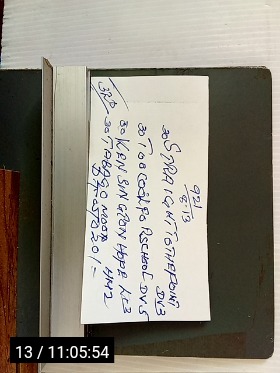 921
8:13
30 STRAIGHT TO THE POINT
DV3
30 TOO COOL FOR SCHOOL DV5
30 KENSINGTON HOPE LE3
3RD 30 TABAGO MOON HM2
201-
13 / 11:05:54